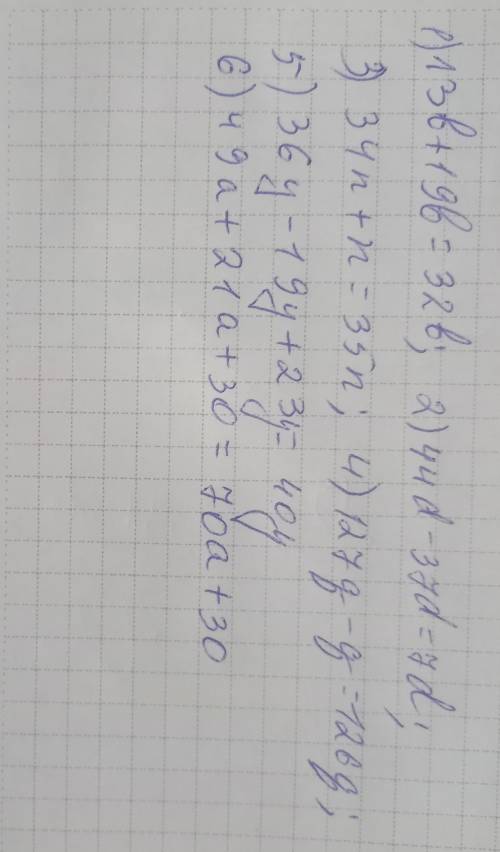 1) 13b + 19b = 32b; 2) 44d - 37d = 7d;
3) 34n + n = 35n; 4) 127g - g = 126g;
5) 36y - 19y + 23y = 40y
6) 49a + 21a + 30 = 70a + 30